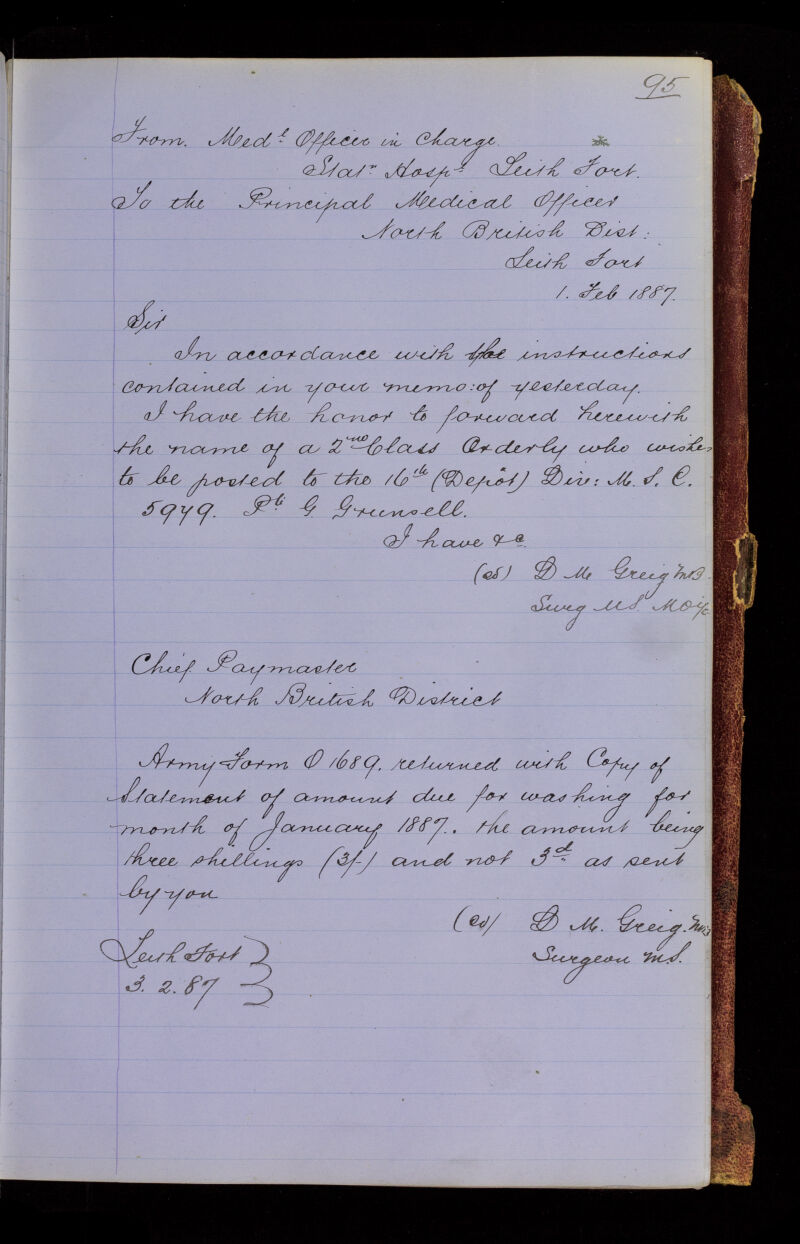 95
From. Med.l Officer in Charge.
Stat.n Hosp.l Leith Fort.
To the Principal Medical Officer
North British Dist:
Leith Fort
1. Feb 1887.
Sir
In accordance with the instructions
contained in your memo: of yesterday.
I have the honor to forward herewith
the name of a 2nd Class Orderly who wishes
to be posted to the 16th (Depôt) Divn: M. S. C.
5979. Pte G. Grunsell.
I have &c.
(sd) D M Greig MB.
Surg MS MO i/c
Chief Paymaster
North British District
Army Form O 1689. returned with Copy of
Statement of amount due for washing for
month of January 1887.. the amount being
three shillings (3/-) and not 3d. as sent
by you
(sd) D M. Greig. MB
Surgeon M.S.
Leith Fort
3. 2. 87